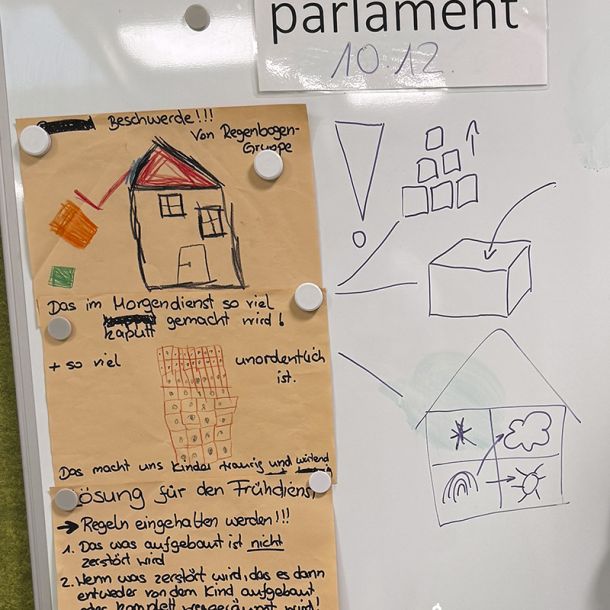 parlament
10.12.
Beschwerde!!!
Von Regenbogen-
Gruppe
Das im Morgendienst so viel
kaputt gemacht wird!
+ so viel unordentlich
ist.
Das macht uns Kinder traurig und wütend
Lösung für den Frühdienst
→ Regeln eingehalten werden!!!
1. Das was aufgebaut ist nicht
zerstört wird
2. Wenn was zerstört wird, das es dann
entweder von dem Kind aufgebaut
oder komplett weggeräumt wird!